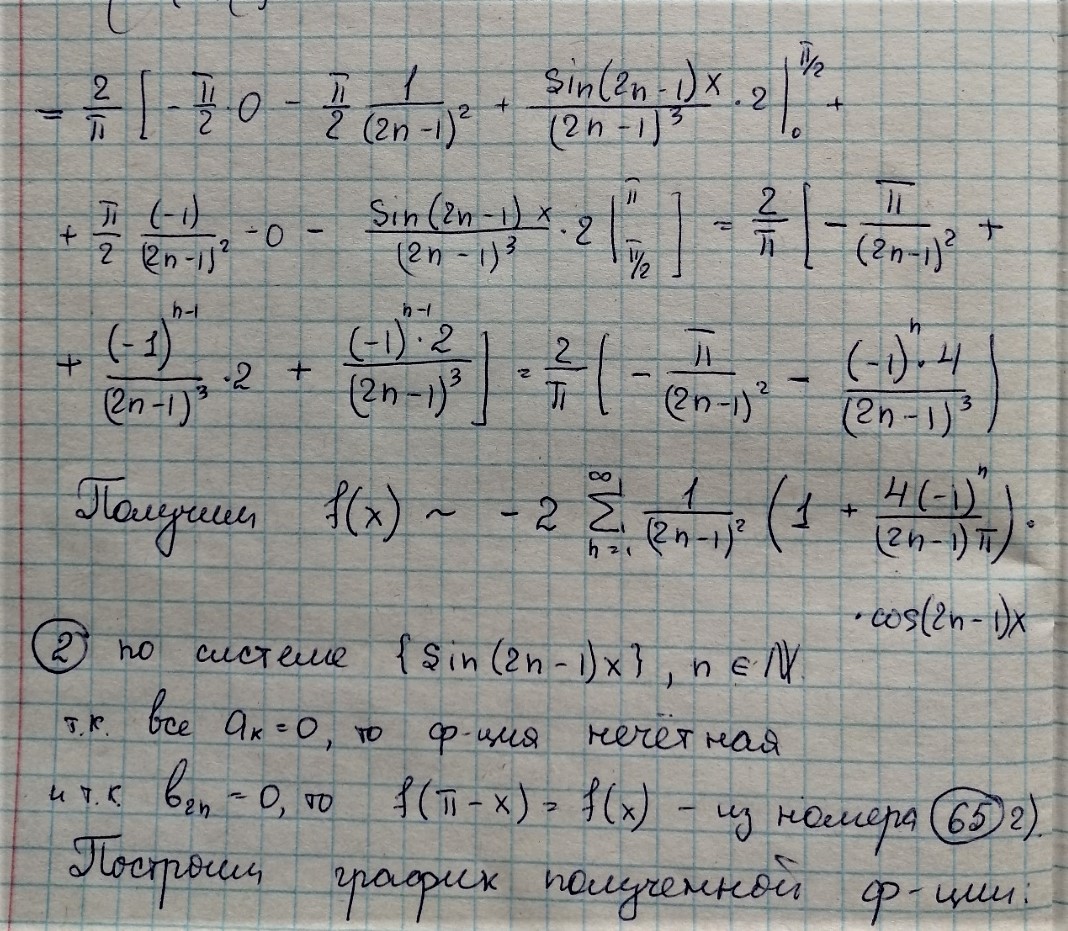 = 2/π [ - π/2 · 0 - π/2 1/(2n-1)² + sin(2n-1)x/(2n-1)³ · 2 |₀^{π/2} +
+ π/2 (-1)/(2n-1)² - 0 - sin(2n-1)x/(2n-1)³ · 2 |_{π/2}^{π} ] = 2/π [ - π/(2n-1)² +
+ (-1)^{n-1}/(2n-1)³ · 2 + (-1)^{n-1} · 2/(2n-1)³ ] = 2/π ( - π/(2n-1)² - (-1)^n · 4/(2n-1)³ )
Получим f(x) ~ -2 ∑_{n=1}^{∞} 1/(2n-1)² ( 1 + 4(-1)^n/(2n-1)π ) ·
· cos(2n-1)x
② по системе {sin(2n-1)x}, n ∈ ℕ.
т.к. все aₖ = 0, то ф-ция нечётная
и т.к. b₂ₙ = 0, то f(π-x) = f(x) - из номера (65) г).
Построим график полученной ф-ции: